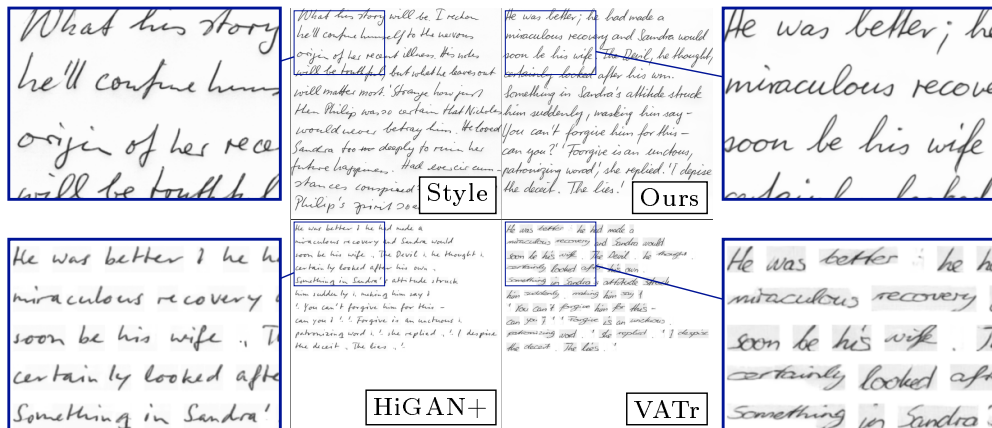 What his story
he'll confine hims
origin of her rece
will be touthful
What his story will be. I reckon
he'll confine himself to the nervous
origin of her recent illness. His notes
will be touthful, but what he leaves out
will matter most.' Strange how just
then Philip was so certain that Nicholas
would never betray him. He loved
Sandra too deeply to ruin her
future happiness. Had ever circum-
stances conspired
Philip's spirit soa
Style
He was better; he had made a
miraculous recovery and Sandra would
soon be his wife. The Devil, he thought,
certainly looked after his own.
Something in Sandra's attitude struck
him suddenly, making him say-
'You can't forgive him for this-
can you?' 'Foorgive is an unctuous,
patronizing word', she replied. 'I depise
the deceit. The lies.'
Ours
He was better; he
miraculous recove
soon be his wife
certainly looked
He was better ; he h
miraculous recovery a
soon be his wife . Th
certainly looked afte
Something in Sandra'
He was better ; he had made a
miraculous recovery and Sandra would
soon be his wife . The Devil , he thought ,
certainly looked after his own .
Something in Sandra's attitude struck
him suddenly , making him say -
' You can't forgive him for this -
can you ? ' ' Forgive is an unctuous ,
patronizing word ' , she replied . ' I despise
the deceit . The lies . '
HiGAN+
He was better ; he had made a
miraculous recovery and Sandra would
soon be his wife . The Devil , he thought ,
certainly looked after his own .
Something in Sandra's attitude struck
him suddenly , making him say -
' You can't forgive him for this -
can you ? ' ' Forgive is an unctuous
patronizing word ' , she replied . ' I despise
the deceit . The lies . '
VATr
He was better ; he h
miraculous recovery
soon be his wife . T
certainly looked aft
Something in Sandra